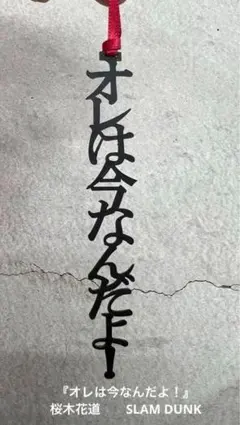 オレは今なんだよ!
『オレは今なんだよ!』
桜木花道 SLAM DUNK